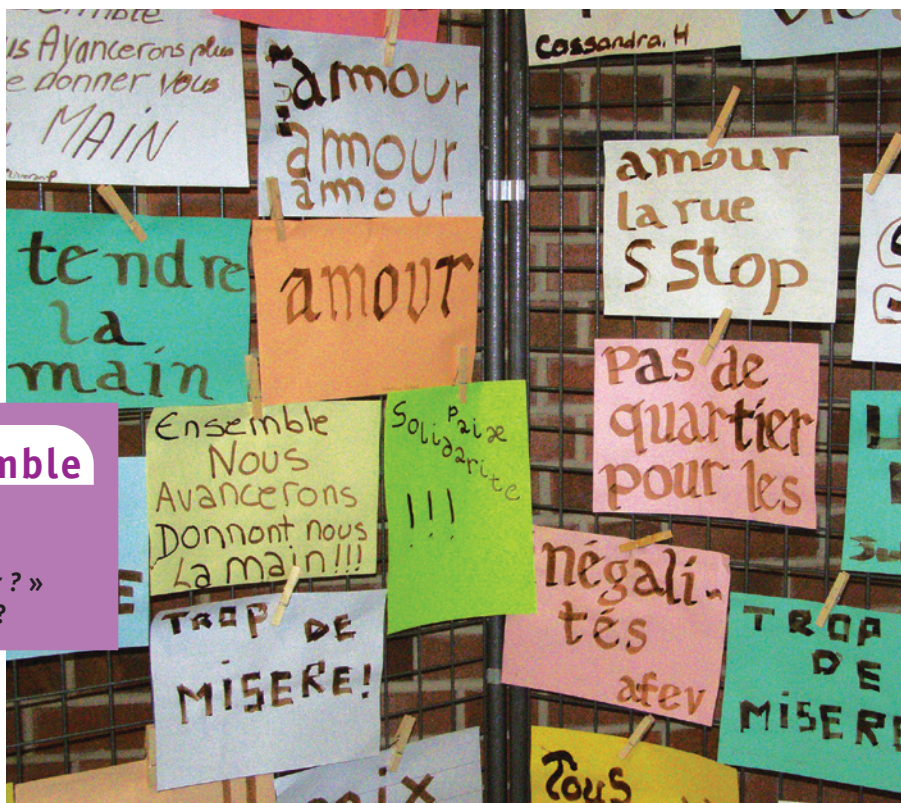 us Avancerons plus
donner Vous
MAIN
amour
amour
amour
Cassandra. H
amour
la rue
S Stop
tendre
la
main
amour
Pas de
quartier
pour les
mble
? »
?
Ensemble
Nous
Avancerons
Donnont nous
La main!!!
Paix
Solidarite
!!!
négali-
tés
afev
TROP DE
MISERE!
TROP
DE
MISERE
Tous